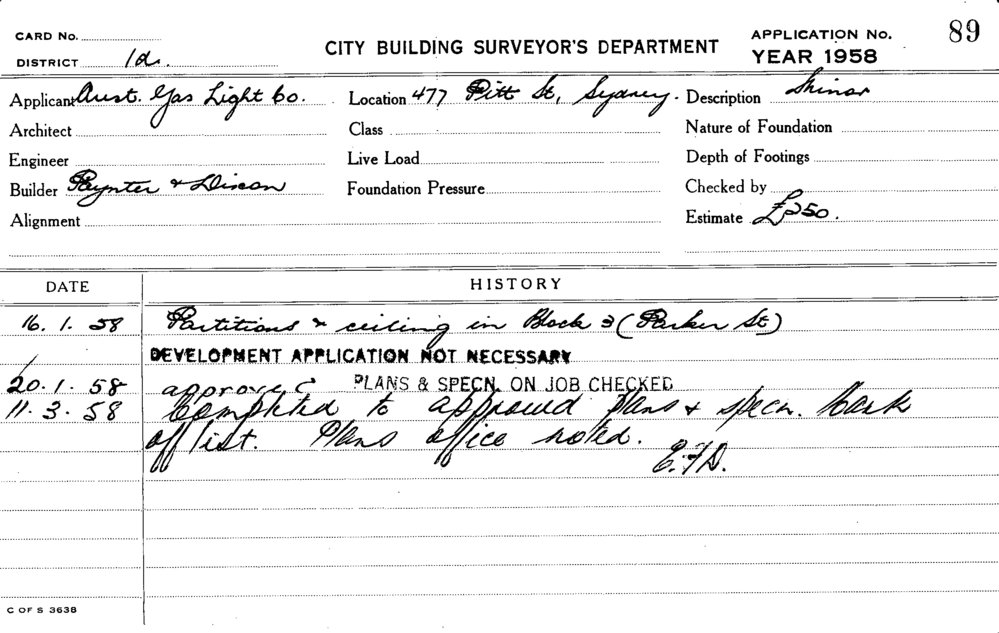 CARD No.
DISTRICT 1d.
CITY BUILDING SURVEYOR'S DEPARTMENT
APPLICATION No. 89
YEAR 1958
Applicant Aust. Gas Light Co. Location 477 Pitt St, Sydney. Description Minor
Architect Class Nature of Foundation
Engineer Live Load Depth of Footings
Builder Paynter & Dixon Foundation Pressure Checked by
Alignment Estimate £250.
DATE HISTORY
16.1.58 Partitions & ceiling in Block 3 (Parker St)
DEVELOPMENT APPLICATION NOT NECESSARY
20.1.58 approved PLANS & SPECN. ON JOB CHECKED
11.3.58 Completed to approved plans & specn. Mark
off list. Plans office noted.
E.F.D.
C OF S 3638